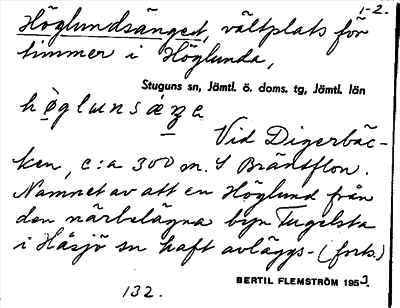 1-2.
Höglundsänget, vältplats för
timmer i Höglunda,
Stuguns sn, Jämtl. ö. doms. tg, Jämtl. län
Vid Digerbäc-
ken, c:a 300 m. S Brändflon.
Namnet av att en Höglund från
den närbelägna byn Fugelsta
i Håsjö sn haft avläggs- (forts.)
BERTIL FLEMSTRÖM 1953.
132.